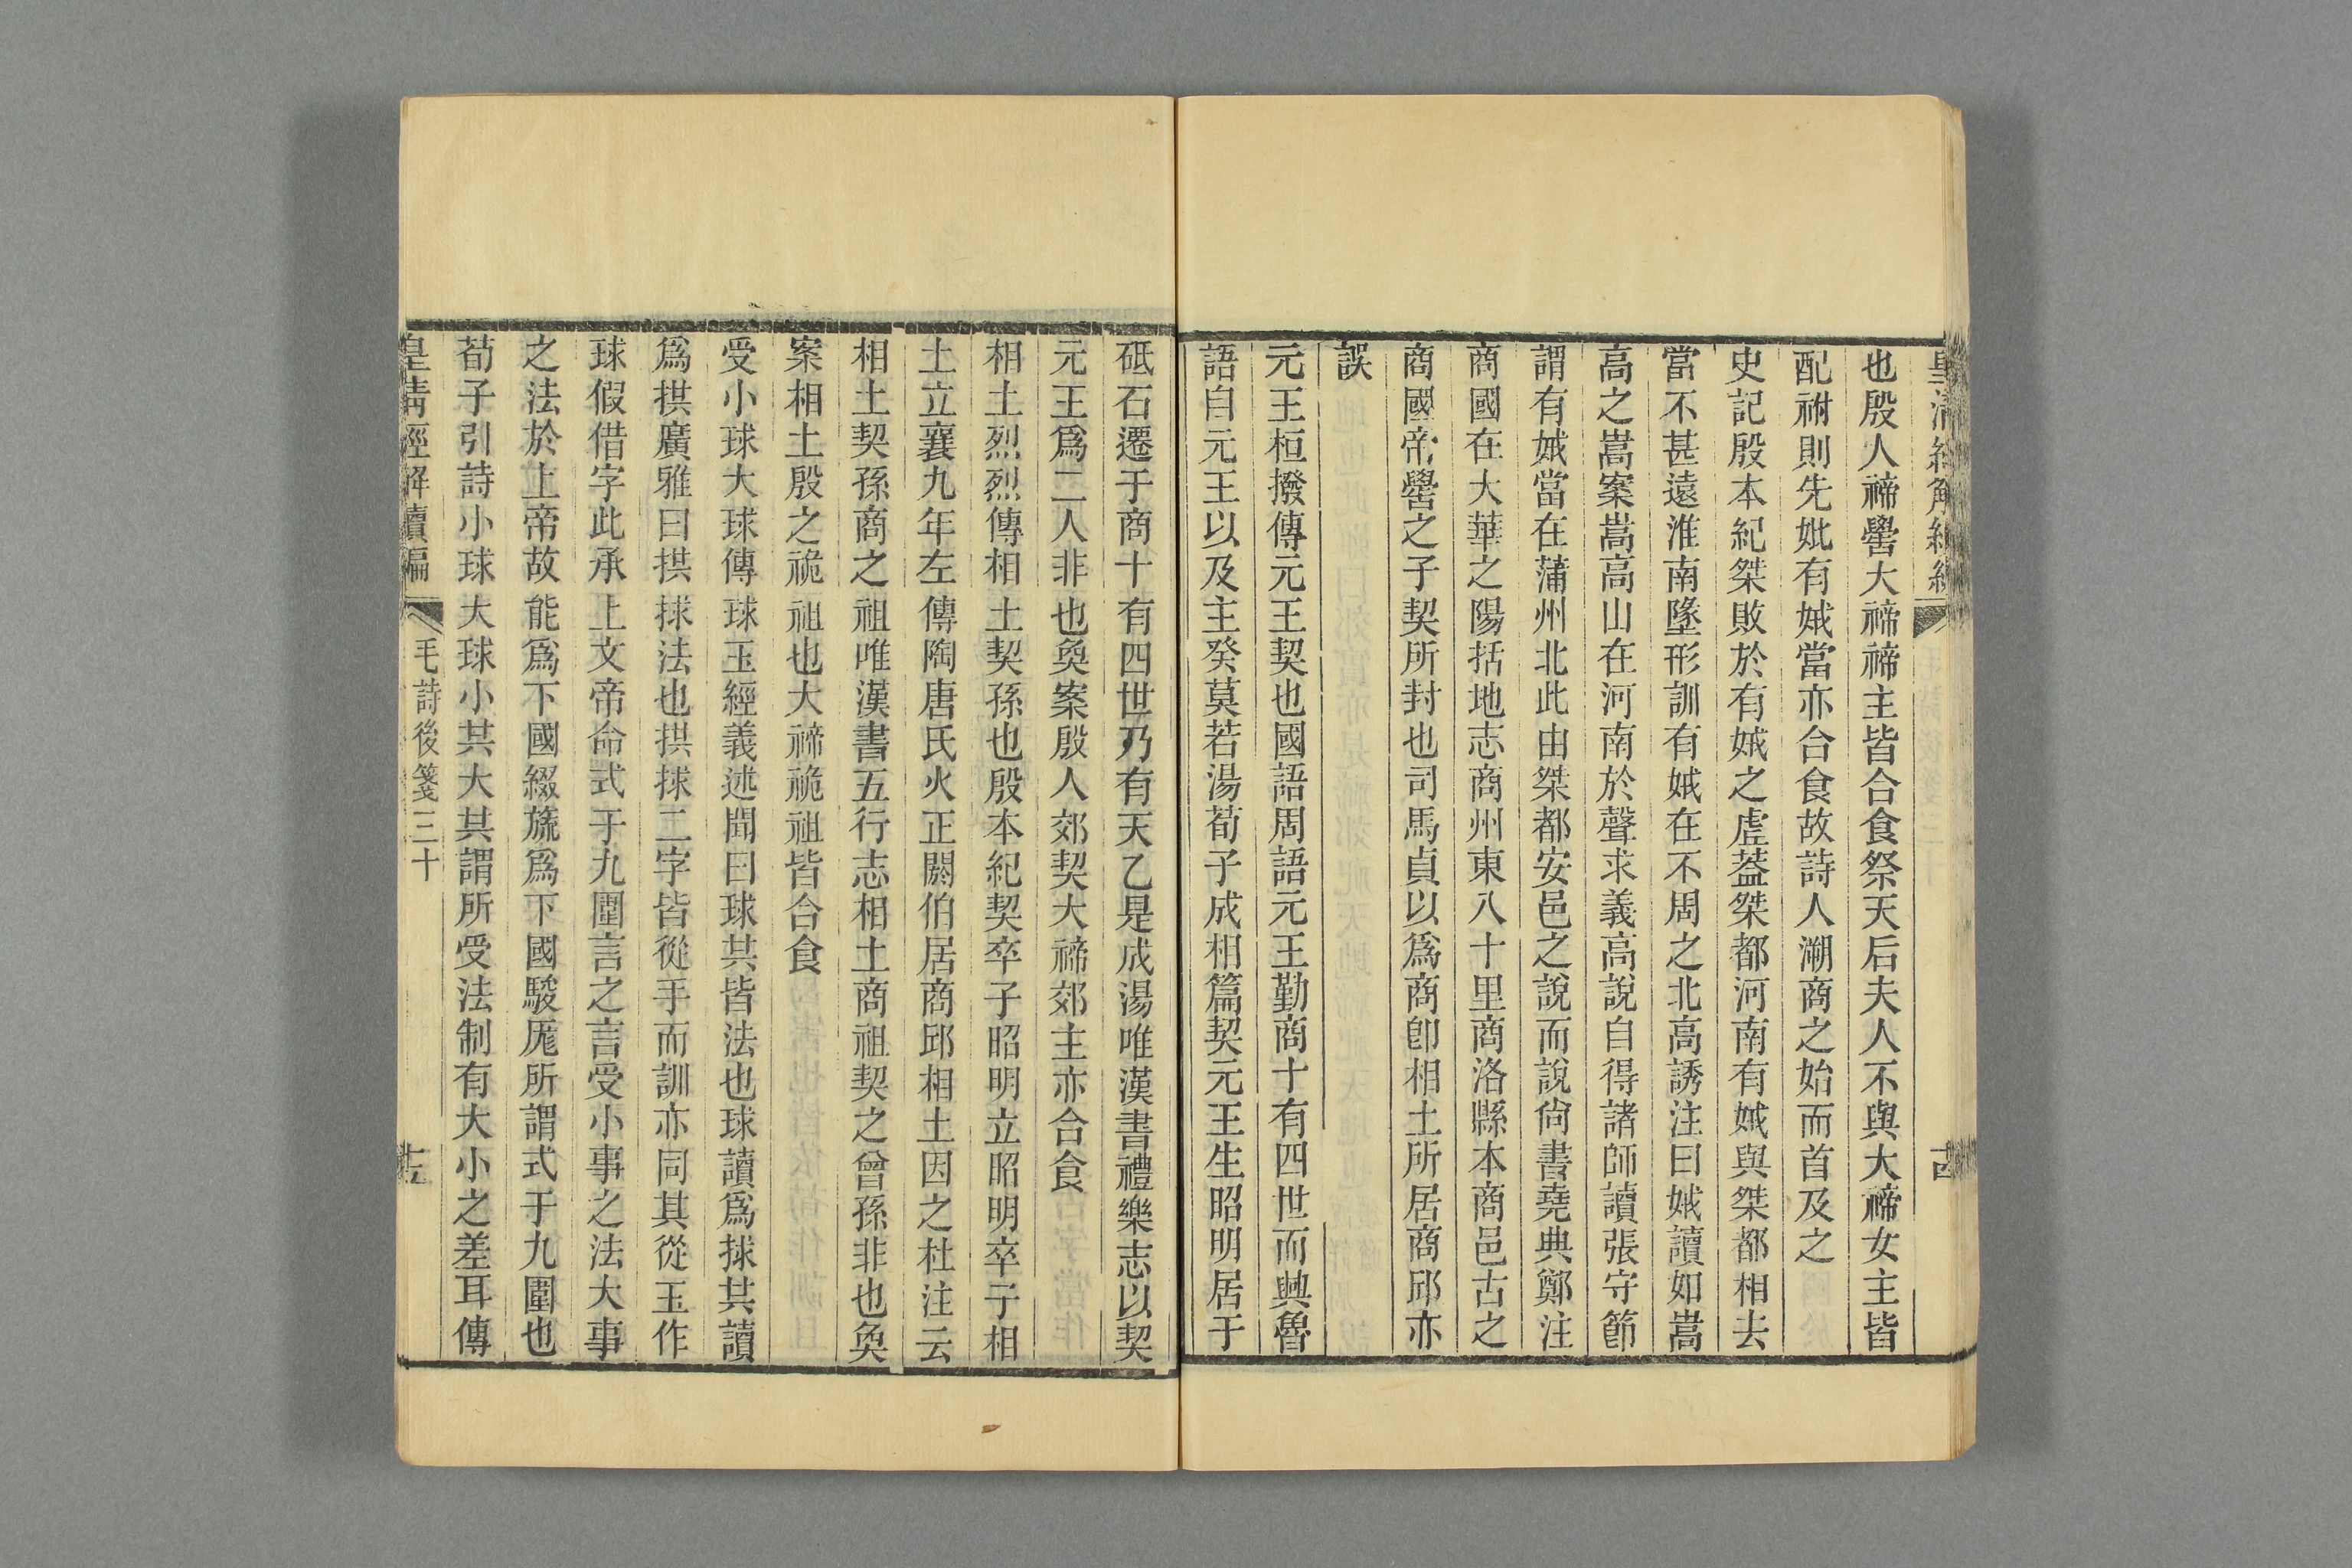 也殷人禘嚳大禘禘主皆合食祭天后夫人不與大禘女主皆
配祔則先妣有娀當亦合食故詩人溯商之始而首及之
史記殷本紀桀敗於有娀之虛葢桀都河南有娀與桀都相去
當不甚遠淮南墬形訓有娀在不周之北高誘注曰娀讀如嵩
高之嵩案嵩高山在河南於聲求義高說自得諸師讀張守節
謂有娀當在蒲州北此由桀都安邑之說而說尙書堯典鄭注
商國在大華之陽括地志商州東八十里商洛縣本商邑古之
商國帝嚳之子契所封也司馬貞以爲商卽相土所居商邱亦
誤
元王桓撥傳元王契也國語周語元王勤商十有四世而興魯
語自元王以及主癸莫若湯荀子成相篇契元王生昭明居于
砥石遷于商十有四世乃有天乙是成湯唯漢書禮樂志以契
元王爲二人非也奐案殷人郊契大禘郊主亦合食
相土烈烈傳相土契孫也殷本紀契卒子昭明立昭明卒子相
土立襄九年左傳陶唐氏火正閼伯居商邱相土因之杜注云
相土契孫商之祖唯漢書五行志相土商祖契之曾孫非也奐
案相土殷之祧祖也大禘祧祖皆合食
受小球大球傳球玉經義述聞曰球共皆法也球讀爲捄共讀
爲拱廣雅曰拱捄法也拱捄二字皆從手而訓亦同其從玉作
球假借字此承上文帝命式于九圍言之言受小事之法大事
之法於上帝故能爲下國綴旒爲下國駿厖所謂式于九圍也
荀子引詩小球大球小共大共謂所受法制有大小之差耳傳
皇淸經解續編
毛詩後箋三十
十五